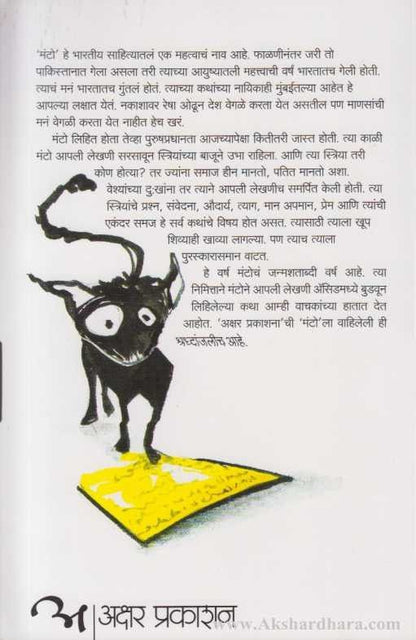 'मंटो' हे भारतीय साहित्यातलं एक महत्वाचं नाव आहे. फाळणीनंतर जरी तो
पाकिस्तानात गेला असला तरी त्याच्या आयुष्यातली महत्त्वाची वर्षं भारतातच गेली होती.
त्याचं मनं भारतातच गुंतलं होतं. त्याच्या कथांच्या नायिकाही मुंबईतल्या आहेत हे
आपल्या लक्षात येतं. नकाशावर रेषा ओढून देश वेगळे करता येत असतील पण माणसांची
मनं वेगळी करता येत नाहीत हेच खरं.
मंटो लिहित होता तेव्हा पुरुषप्रधानता आजच्यापेक्षा कितीतरी जास्त होती. त्या काळी
मंटो आपली लेखणी सरसावून स्त्रियांच्या बाजूने उभा राहिला. आणि त्या स्त्रिया तरी
कोण होत्या? तर ज्यांना समाज हीन मानतो, पतित मानतो अशा.
वेश्यांच्या दुःखांना तर त्याने आपली लेखणीच समर्पित केली होती. त्या
स्त्रियांचे प्रश्न, संवेदना, औदार्य, त्याग, मान अपमान, प्रेम आणि त्यांची
एकंदर समज हे सर्व कथांचे विषय होत असत. त्यासाठी त्याला खूप
शिव्याही खाव्या लागल्या. पण त्याच त्याला
पुरस्कारासमान वाटत.
हे वर्ष मंटोचं जन्मशताब्दी वर्ष आहे. त्या
निमित्ताने मंटोने आपली लेखणी ॲसिडमध्ये बुडवून
लिहिलेल्या कथा आम्ही वाचकांच्या हातात देत
आहोत. 'अक्षर प्रकाशना'ची 'मंटो'ला वाहिलेली ही
श्रध्दांजलीच आहे.
अ | अक्षर प्रकाशन
www.Akshardhara.com